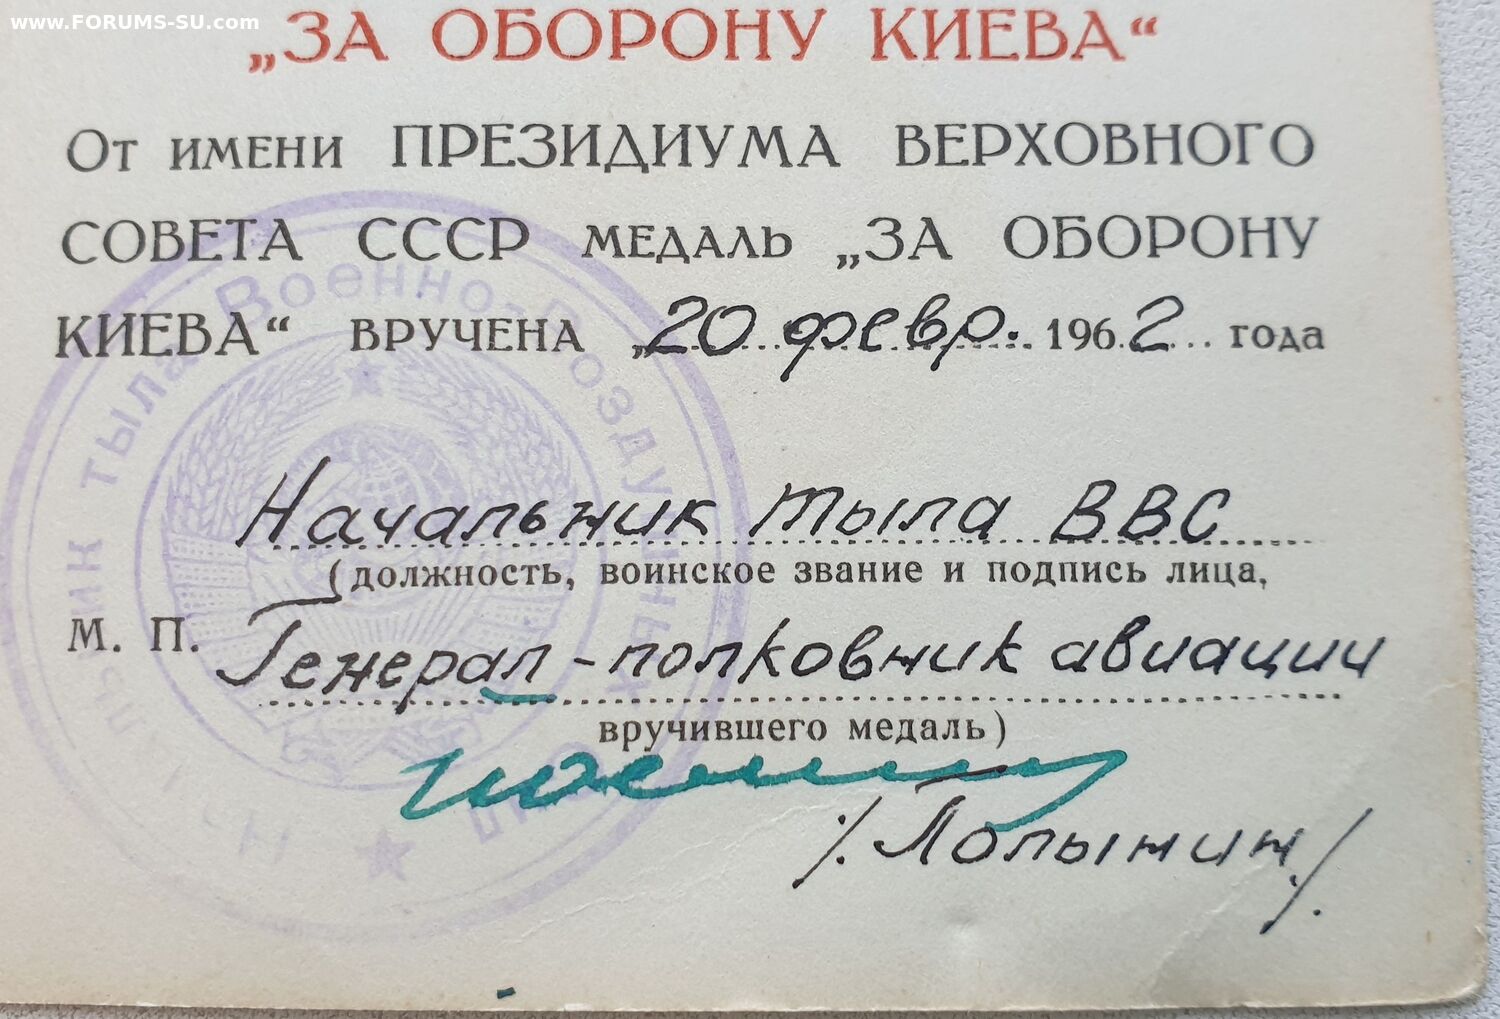 www.FORUMS-SU.com
„ЗА ОБОРОНУ КИЕВА“
От имени ПРЕЗИДИУМА ВЕРХОВНОГО
СОВЕТА СССР медаль „ЗА ОБОРОНУ
КИЕВА“ вручена „20 февр. 1962 года
Начальник тыла ВВС
(должность, воинское звание и подпись лица,
М. П. Генерал-полковник авиации
вручившего медаль)
/. Лопынин /.
ик тыла Военно-Воздушных